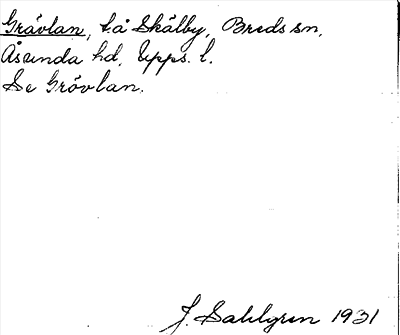 Grävlan, t.å Skälby, Breds sn,
Åsunda hd, Upps. l.
Se Grövlan.
J. Sahlgren 1931